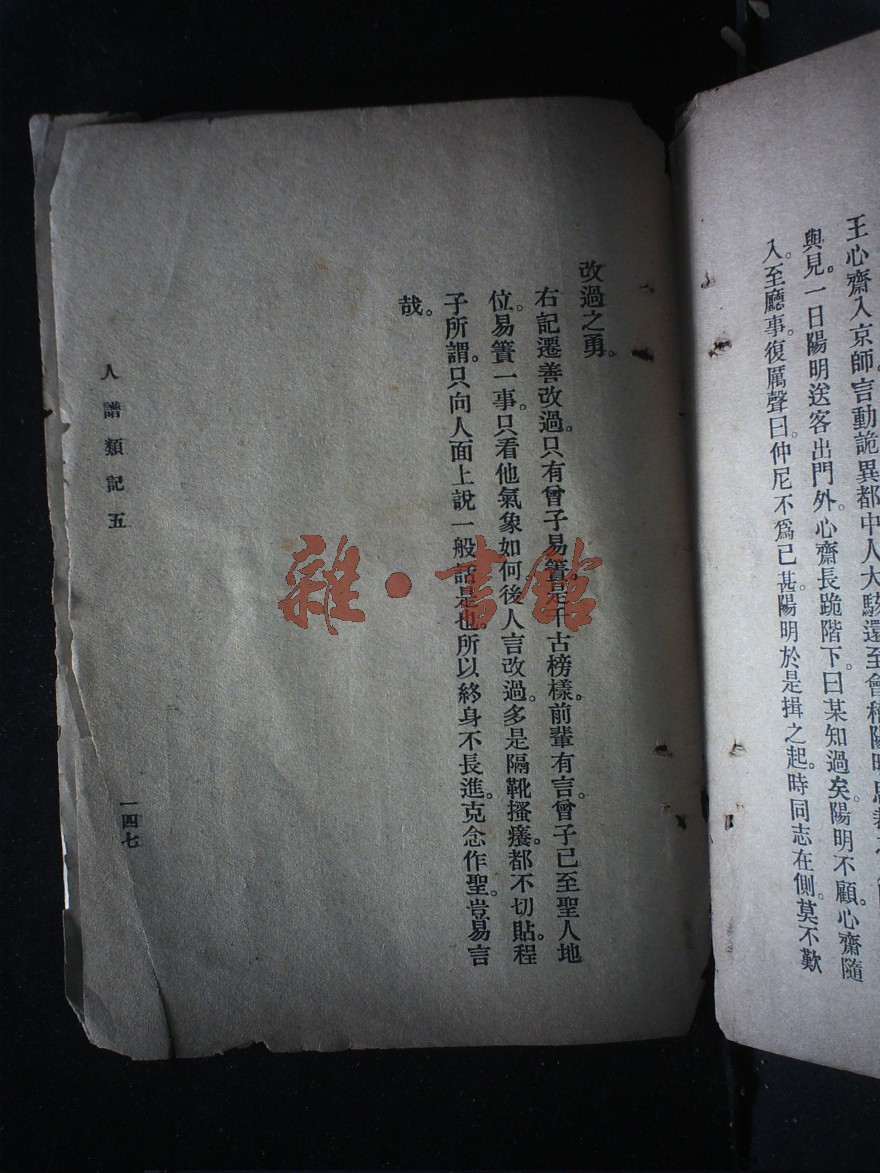 王心齋入京師。言動詭異都中人大駭還至會稽陽明
與見。一日陽明送客出門外。心齋長跪階下。曰某知過矣陽明不顧。心齋隨
入。至廳事。復厲聲曰。仲尼不爲已甚。陽明於是揖之起。時同志在側。莫不歎
改過之勇。
右記遷善改過。只有曾子易簀。是千古榜樣。前輩有言。曾子已至聖人地
位。易簀一事。只看他氣象如何。後人言改過。多是隔靴搔癢。都不切貼。程
子所謂。只向人面上說一般話是也。所以終身不長進。克念作聖。豈易言
哉。
人譜類記五
一四七
雜·書館